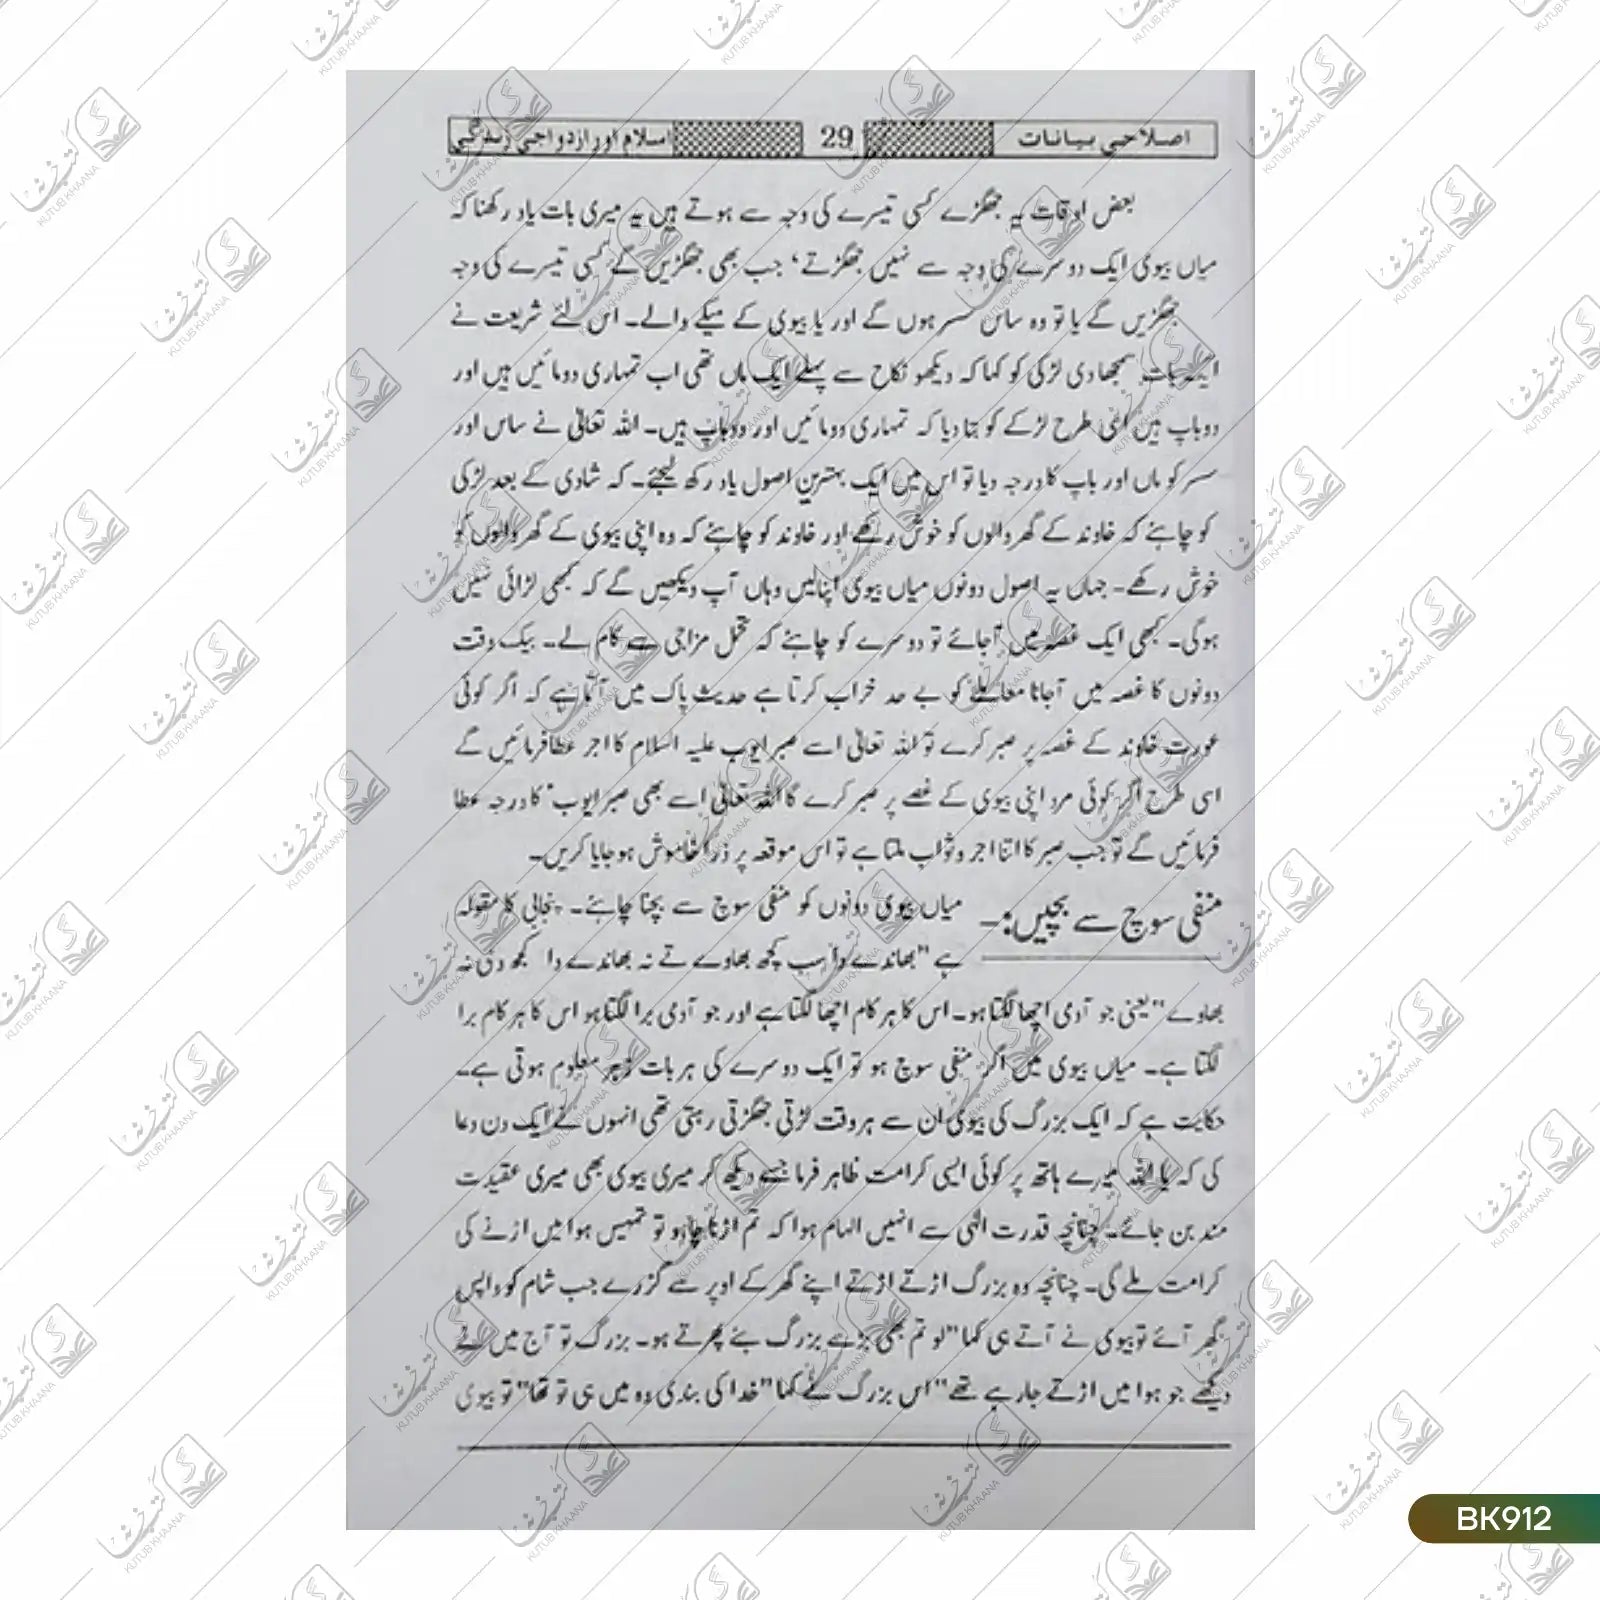 اصلاحی بیانات 29 اسلام اور ازدواجی زندگی
بعض اوقات یہ جھگڑے کسی تیسرے کی وجہ سے ہوتے ہیں یہ میری بات یاد رکھنا کہ
میاں بیوی ایک دوسرے کی وجہ سے نہیں جھگڑتے، جب بھی جھگڑیں گے کسی تیسرے کی وجہ
جھگڑیں گے یا تو وہ ساس سسر ہوں گے اور یا بیوی کے میکے والے۔ اس لئے شریعت نے
ایک بات سمجھا دی لڑکی کو کہا کہ دیکھو نکاح سے پہلے ایک ماں تھی اب تمہاری دو مائیں ہیں اور
دو باپ ہیں اسی طرح لڑکے کو بتا دیا کہ تمہاری دو مائیں اور دو باپ ہیں۔ اللہ تعالیٰ نے ساس اور
سسر کو ماں اور باپ کا درجہ دیا تو اس میں ایک بہترین اصول یاد رکھ لیجئے۔ کہ شادی کے بعد لڑکی
کو چاہئے کہ خاوند کے گھر والوں کو خوش رکھے اور خاوند کو چاہئے کہ وہ اپنی بیوی کے گھر والوں کو
خوش رکھے۔ جہاں یہ اصول دونوں میاں بیوی اپنالیں وہاں آپ دیکھیں گے کہ کبھی لڑائی نہیں
ہوگی۔ کبھی ایک غصہ میں آجائے تو دوسرے کو چاہئے کہ تحمل مزاجی سے کام لے۔ بیک وقت
دونوں کا غصہ میں آجانا معاملے کو بے حد خراب کرتا ہے حدیث پاک میں آتا ہے کہ اگر کوئی
عورت خاوند کے غصہ پر صبر کرے تو اللہ تعالیٰ اسے صبر ایوب علیہ السلام کا اجر عطا فرمائیں گے
اسی طرح اگر کوئی مرد اپنی بیوی کے غصے پر صبر کرے گا اللہ تعالیٰ اسے بھی صبر ایوبؑ کا درجہ عطا
فرمائیں گے تو جب صبر کا اتنا اجر و ثواب ملتا ہے تو اس موقعہ پر ذرا خاموش ہو جایا کریں۔
منفی سوچ سے بچیں:۔ میاں بیوی دونوں کو منفی سوچ سے بچنا چاہئے۔ پنجابی کا مقولہ
ہے "بھاندے دا سب کچھ بھاوے تے نہ بھاندے دا کچھ وی نہ
بھاوے" یعنی جو آدمی اچھا لگتا ہو۔ اس کا ہر کام اچھا لگتا ہے اور جو آدمی برا لگتا ہو اس کا ہر کام برا
لگتا ہے۔ میاں بیوی میں اگر منفی سوچ ہو تو ایک دوسرے کی ہر بات زہر معلوم ہوتی ہے۔
حکایت ہے کہ ایک بزرگ کی بیوی ان سے ہر وقت لڑتی جھگڑتی رہتی تھی انہوں نے ایک دن دعا
کی کہ یا اللہ میرے ہاتھ پر کوئی ایسی کرامت ظاہر فرما جسے دیکھ کر میری بیوی بھی میری عقیدت
مند بن جائے۔ چنانچہ قدرت الہی سے انہیں الہام ہوا کہ تم اڑنا چاہو تو تمہیں ہوا میں اڑنے کی
کرامت ملے گی۔ چنانچہ وہ بزرگ اڑتے اڑتے اپنے گھر کے اوپر سے گزرے جب شام کو واپس
گھر آئے تو بیوی نے آتے ہی کہا "لو تم بھی بڑے بزرگ بنے پھرتے ہو۔ بزرگ تو آج میں نے
دیکھے جو ہوا میں اڑتے جا رہے تھے" اس بزرگ نے کہا "خدا کی بندی وہ میں ہی تو تھا" تو بیوی
BK912
کتب خانہ
KUTUB KHAANA